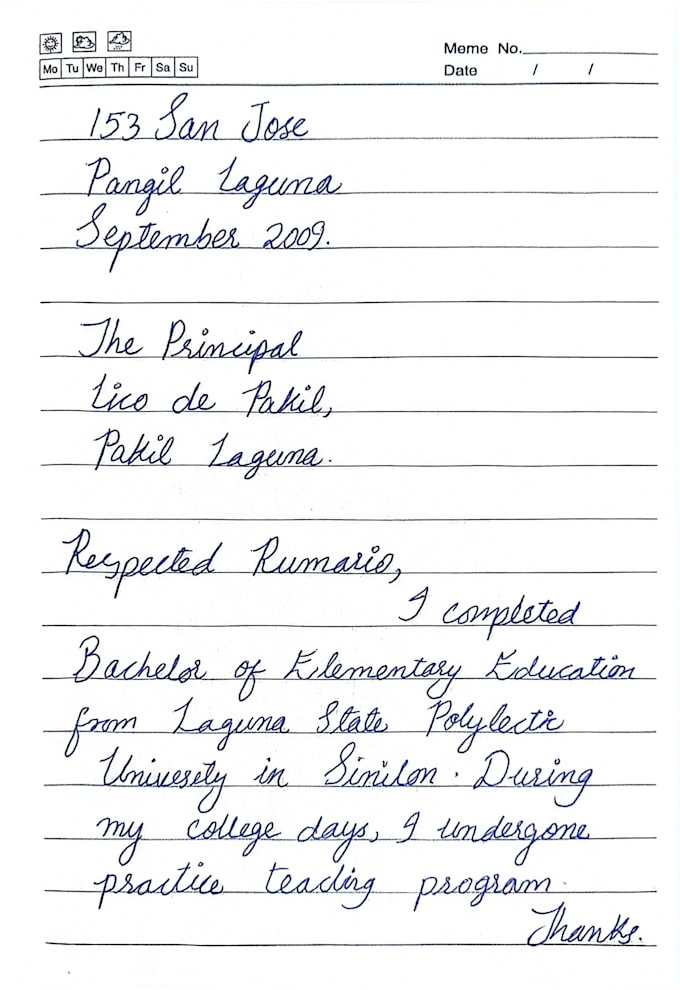 Meme No.
Mo Tu We Th Fr Sa Su
Date / /
153 San Jose
Pangil Laguna
September 2009.
The Principal
Lico de Pakil,
Pakil Laguna.
Respected Rumario,
I completed
Bachelor of Elementary Education
from Laguna State Polylectic
Univesety in Sinilon. During
my college days, I undergone
practice teading program.
Thanks.